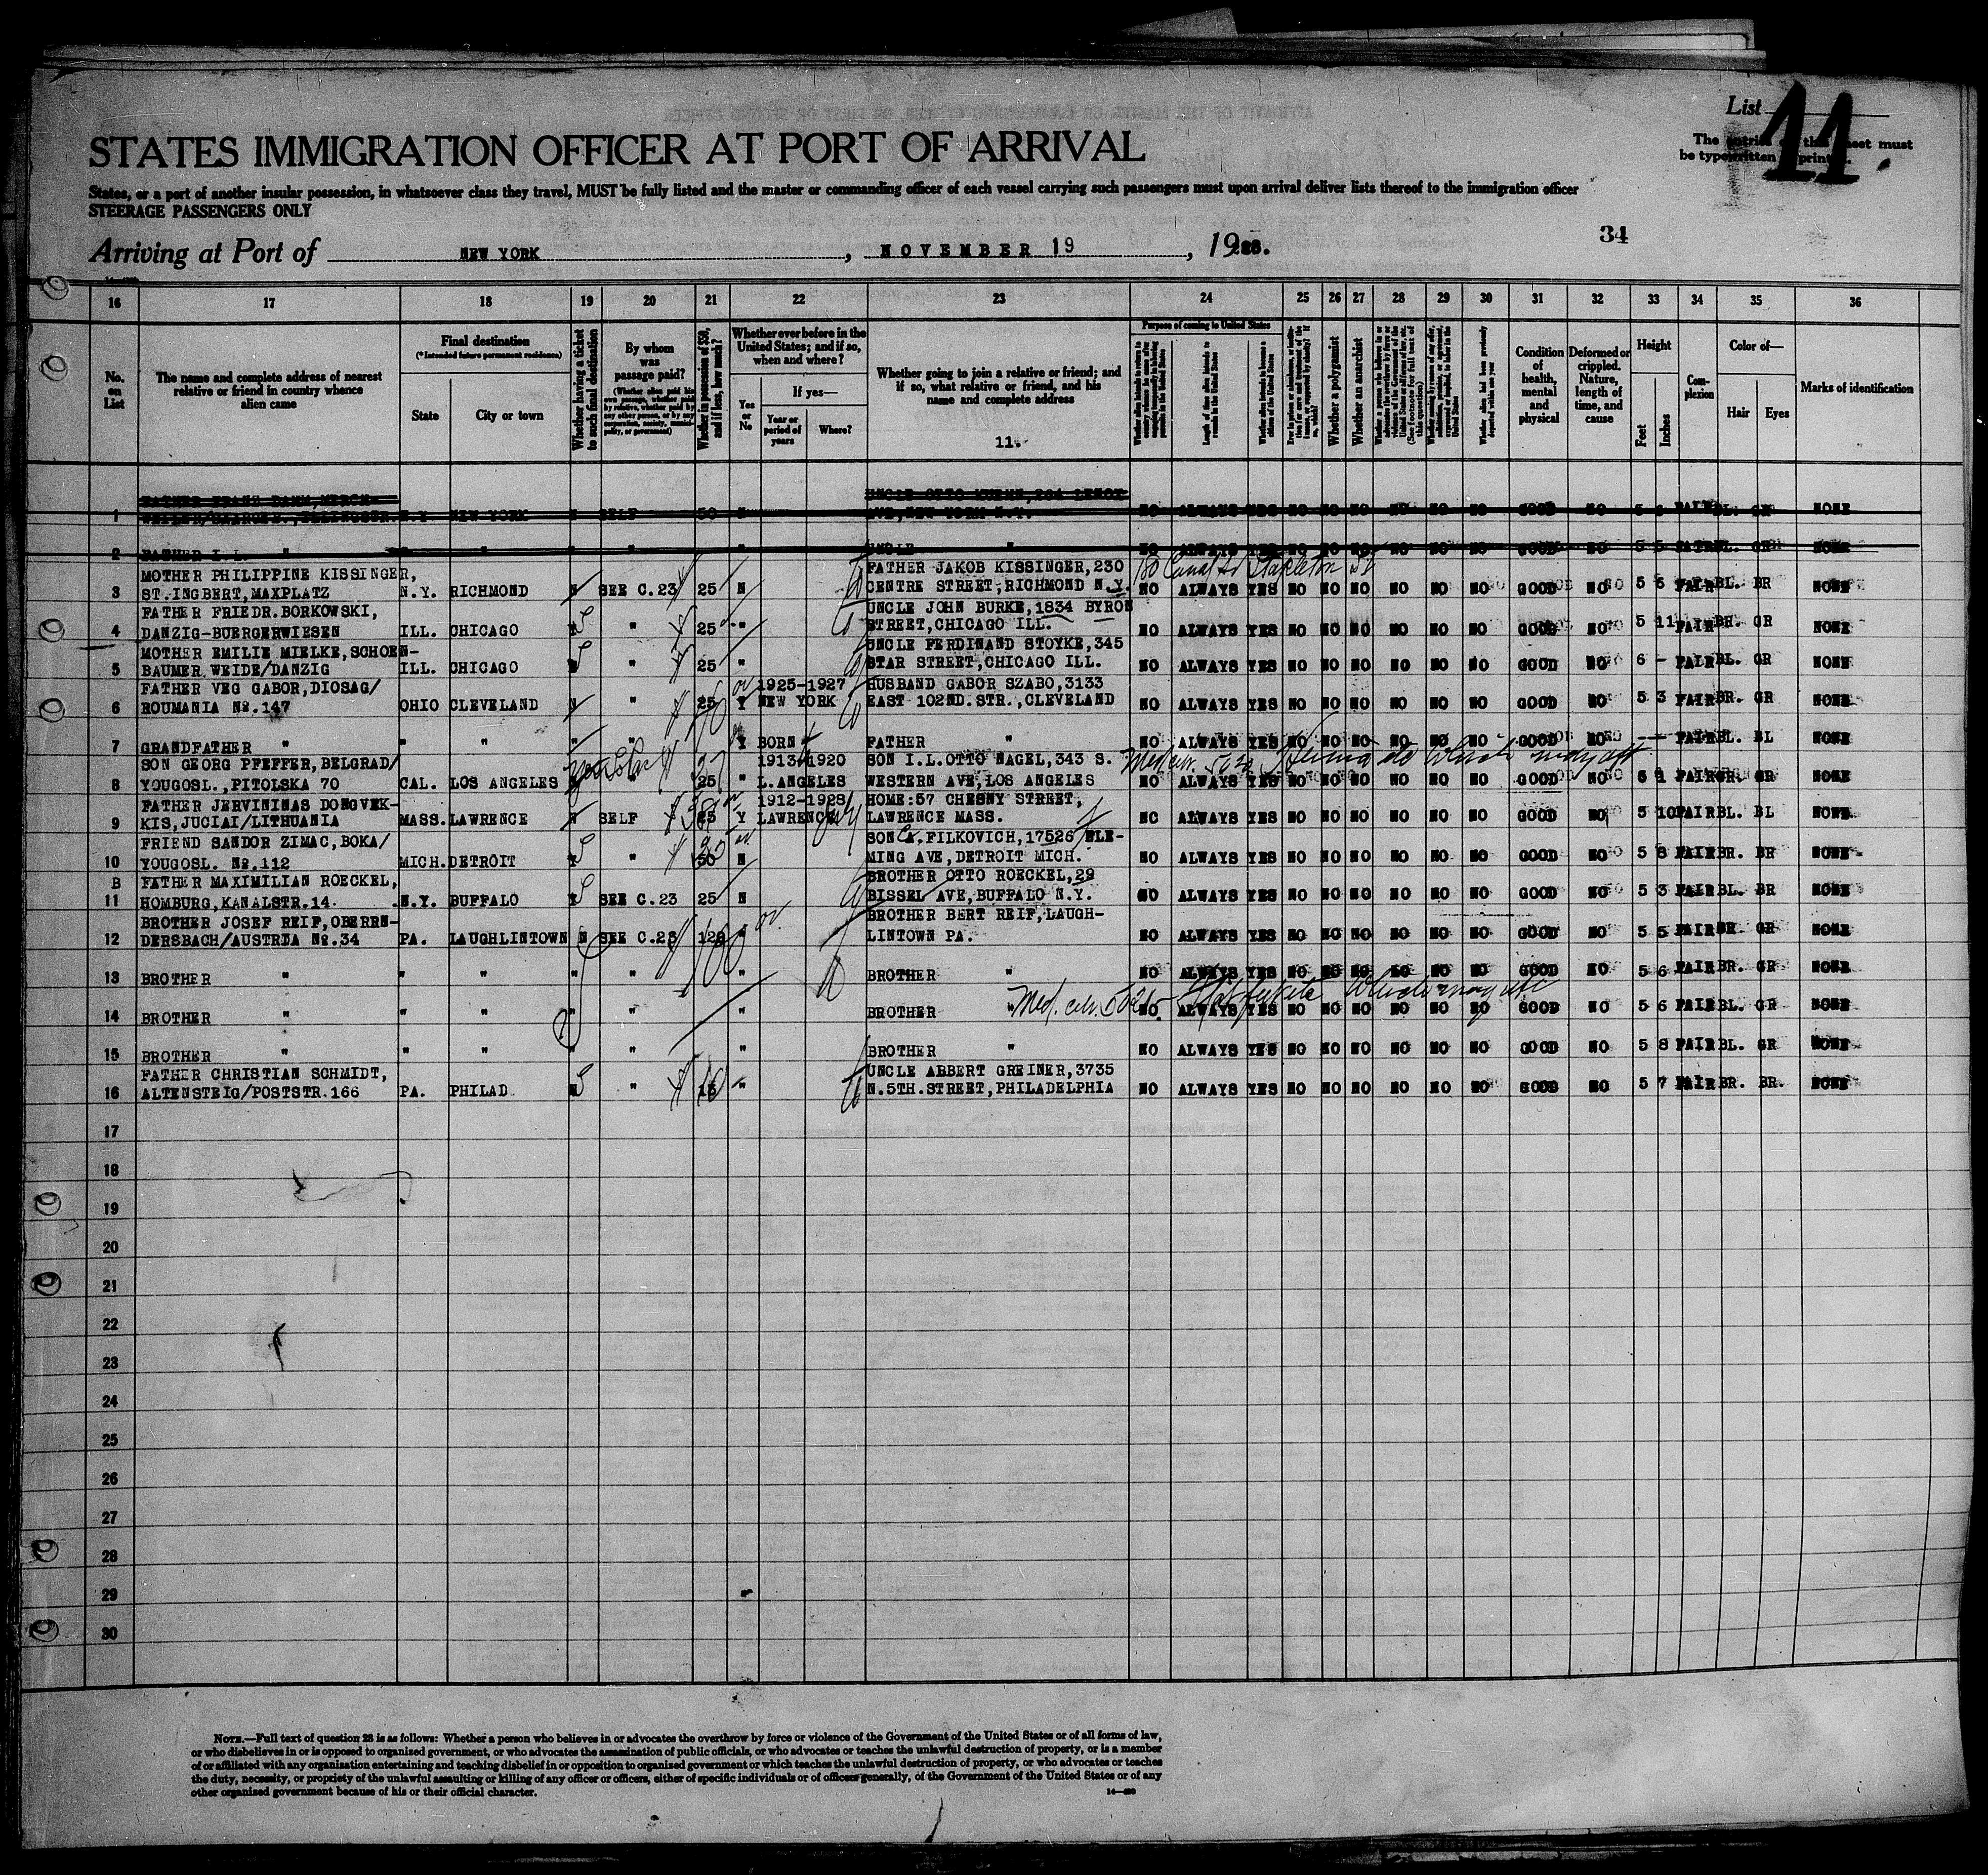 List 11.
STATES IMMIGRATION OFFICER AT PORT OF ARRIVAL
The entries on this sheet must
be typewritten or printed.
States, or a port of another insular possession, in whatsoever class they travel, MUST be fully listed and the master or commanding officer of each vessel carrying such passengers must upon arrival deliver lists thereof to the immigration officer
STEERAGE PASSENGERS ONLY
34
Arriving at Port of NEW YORK, NOVEMBER 19, 1928.
16 17 18 19 20 21 22 23 24 25 26 27 28 29 30 31 32 33 34 35 36
No. on List
The name and complete address of nearest relative or friend in country whence alien came
Final destination
(*Intended future permanent residence)
State
City or town
Whether having a ticket to such final destination
By whom was passage paid?
(Whether alien paid his own passage, whether paid by relative, whether paid by any other person, or by any corporation, society, municipality, or government)
Whether in possession of $50, and if less, how much?
Whether ever before in the United States; and if so, when and where?
Yes or No
If yes—
Year or period of years
Where?
Whether going to join a relative or friend; and if so, what relative or friend, and his name and complete address
11.
Purpose of coming to United States
Length of time alien intends to remain in the United States
Whether alien intends to become a citizen of the United States
Whether a polygamist
Whether an anarchist
Condition of health, mental and physical
Deformed or crippled. Nature, length of time, and cause
Height
Feet
Inches
Complexion
Color of—
Hair
Eyes
Marks of identification
UNCLE OTTO
1 N.Y. NEW YORK N SELF 50 N AVE, NEW YORK N.Y. NO ALWAYS YES NO NO NO NO NO NO GOOD NO 5 FAIR BL. GR NONE
2 FATHER I.L. " " " " " UNCLE " NO ALWAYS YES NO NO NO NO NO NO GOOD NO 5 5 FAIR BL. GR NONE
MOTHER PHILIPPINE KISSINGER, FATHER JAKOB KISSINGER, 230 180 Canal St Stapleton
3 ST.INGBERT, MAXPLATZ N.Y. RICHMOND N SEE C.23 25 N CENTRE STREET, RICHMOND N.Y. NO ALWAYS YES NO NO NO NO NO NO GOOD NO 5 6 FAIR BL. BR NONE
FATHER FRIEDR.BORKOWSKI, UNCLE JOHN BURKE, 1834 BYRON
4 DANZIG-BUERGERWIESEN ILL. CHICAGO " 25 " STREET, CHICAGO ILL. NO ALWAYS YES NO NO NO NO NO NO GOOD NO 5 11 FAIR BR. GR NONE
MOTHER EMILIE MIELKE, SCHOEN- UNCLE FERDINAND STOYKE, 345
5 BAUMER WEIDE/DANZIG ILL. CHICAGO " 25 " STAR STREET, CHICAGO ILL. NO ALWAYS YES NO NO NO NO NO NO GOOD NO 6 - FAIR BL. GR NONE
FATHER VEG GABOR, DIOSAG/ 1925-1927 HUSBAND GABOR SZABO, 3133
6 ROUMANIA No.147 OHIO CLEVELAND N " 25 Y NEW YORK EAST 102ND.STR., CLEVELAND NO ALWAYS YES NO NO NO NO NO NO GOOD NO 5 3 FAIR BR. GR NONE
7 GRANDFATHER " " " " " Y BORN FATHER " NO ALWAYS YES NO NO NO NO NO NO GOOD NO — FAIR BL. BL NONE
SON GEORG PFEFFER, BELGRAD/ 1913 1920 SON I.L.OTTO NAGEL, 343 S. Med cer.
8 YOUGOSL., PITOLSKA 70 CAL. LOS ANGELES 25 " L.ANGELES WESTERN AVE, LOS ANGELES NO ALWAYS YES NO NO NO NO NO NO GOOD NO 5 1 FAIR GR. GR NONE
FATHER JERVININAS DONGVEK- 1912-1928 HOME: 57 CHESNY STREET,
9 KIS, JUCIAI/LITHUANIA MASS. LAWRENCE N SELF 25 Y LAWRENCE LAWRENCE MASS. NO ALWAYS YES NO NO NO NO NO NO GOOD NO 5 10 FAIR BL. BL NONE
FRIEND SANDOR ZIMAC, BOKA/ SON FILKOVICH, 17526 FLE-
10 YOUGOSL. No.112 MICH. DETROIT " 50 N MING AVE, DETROIT MICH. NO ALWAYS YES NO NO NO NO NO NO GOOD NO 5 8 FAIR BR. BR NONE
B FATHER MAXIMILIAN ROECKEL, BROTHER OTTO ROECKEL, 29
11 HOMBURG, KANALSTR.14. N.Y. BUFFALO SEE C.23 25 N BISSEL AVE, BUFFALO N.Y. NO ALWAYS YES NO NO NO NO NO NO GOOD NO 5 3 FAIR BL. BR NONE
BROTHER JOSEF REIF, OBERRN- BROTHER BERT REIF, LAUGH-
12 DERSBACH/AUSTRIA No.34 PA. LAUGHLINTOWN N SEE C.23 120 " LINTOWN PA. NO ALWAYS YES NO NO NO NO NO NO GOOD NO 5 5 FAIR BR. GR NONE
13 BROTHER " " " " " " BROTHER " NO ALWAYS YES NO NO NO NO NO NO GOOD NO 5 6 FAIR BR. GR NONE
14 BROTHER " " " " " " BROTHER " Med. cer. NO ALWAYS YES NO NO NO NO NO NO GOOD NO 5 6 FAIR BL. GR NONE
15 BROTHER " " " " " " BROTHER " NO ALWAYS YES NO NO NO NO NO NO GOOD NO 5 8 FAIR BL. GR NONE
FATHER CHRISTIAN SCHMIDT, UNCLE ABBERT GREINER, 3735
16 ALTENSTEIG/POSTSTR.166 PA. PHILAD. " 15 " N.5TH.STREET, PHILADELPHIA NO ALWAYS YES NO NO NO NO NO NO GOOD NO 5 7 FAIR BR. BR. NONE
17
18
19
20
21
22
23
24
25
26
27
28
29
30
NOTE.—Full text of question 28 is as follows: Whether a person who believes in or advocates the overthrow by force or violence of the Government of the United States or of all forms of law,
or who disbelieves in or is opposed to organised government, or who advocates the assassination of public officials, or who advocates or teaches the unlawful destruction of property, or is a member
of or affiliated with any organisation entertaining and teaching disbelief in or opposition to organised government or which teaches the unlawful destruction of property, or who advocates or teaches
the duty, necessity, or propriety of the unlawful assaulting or killing of any officer or officers, either of specific individuals or of officers generally, of the Government of the United States or of any
other organised government because of his or their official character.